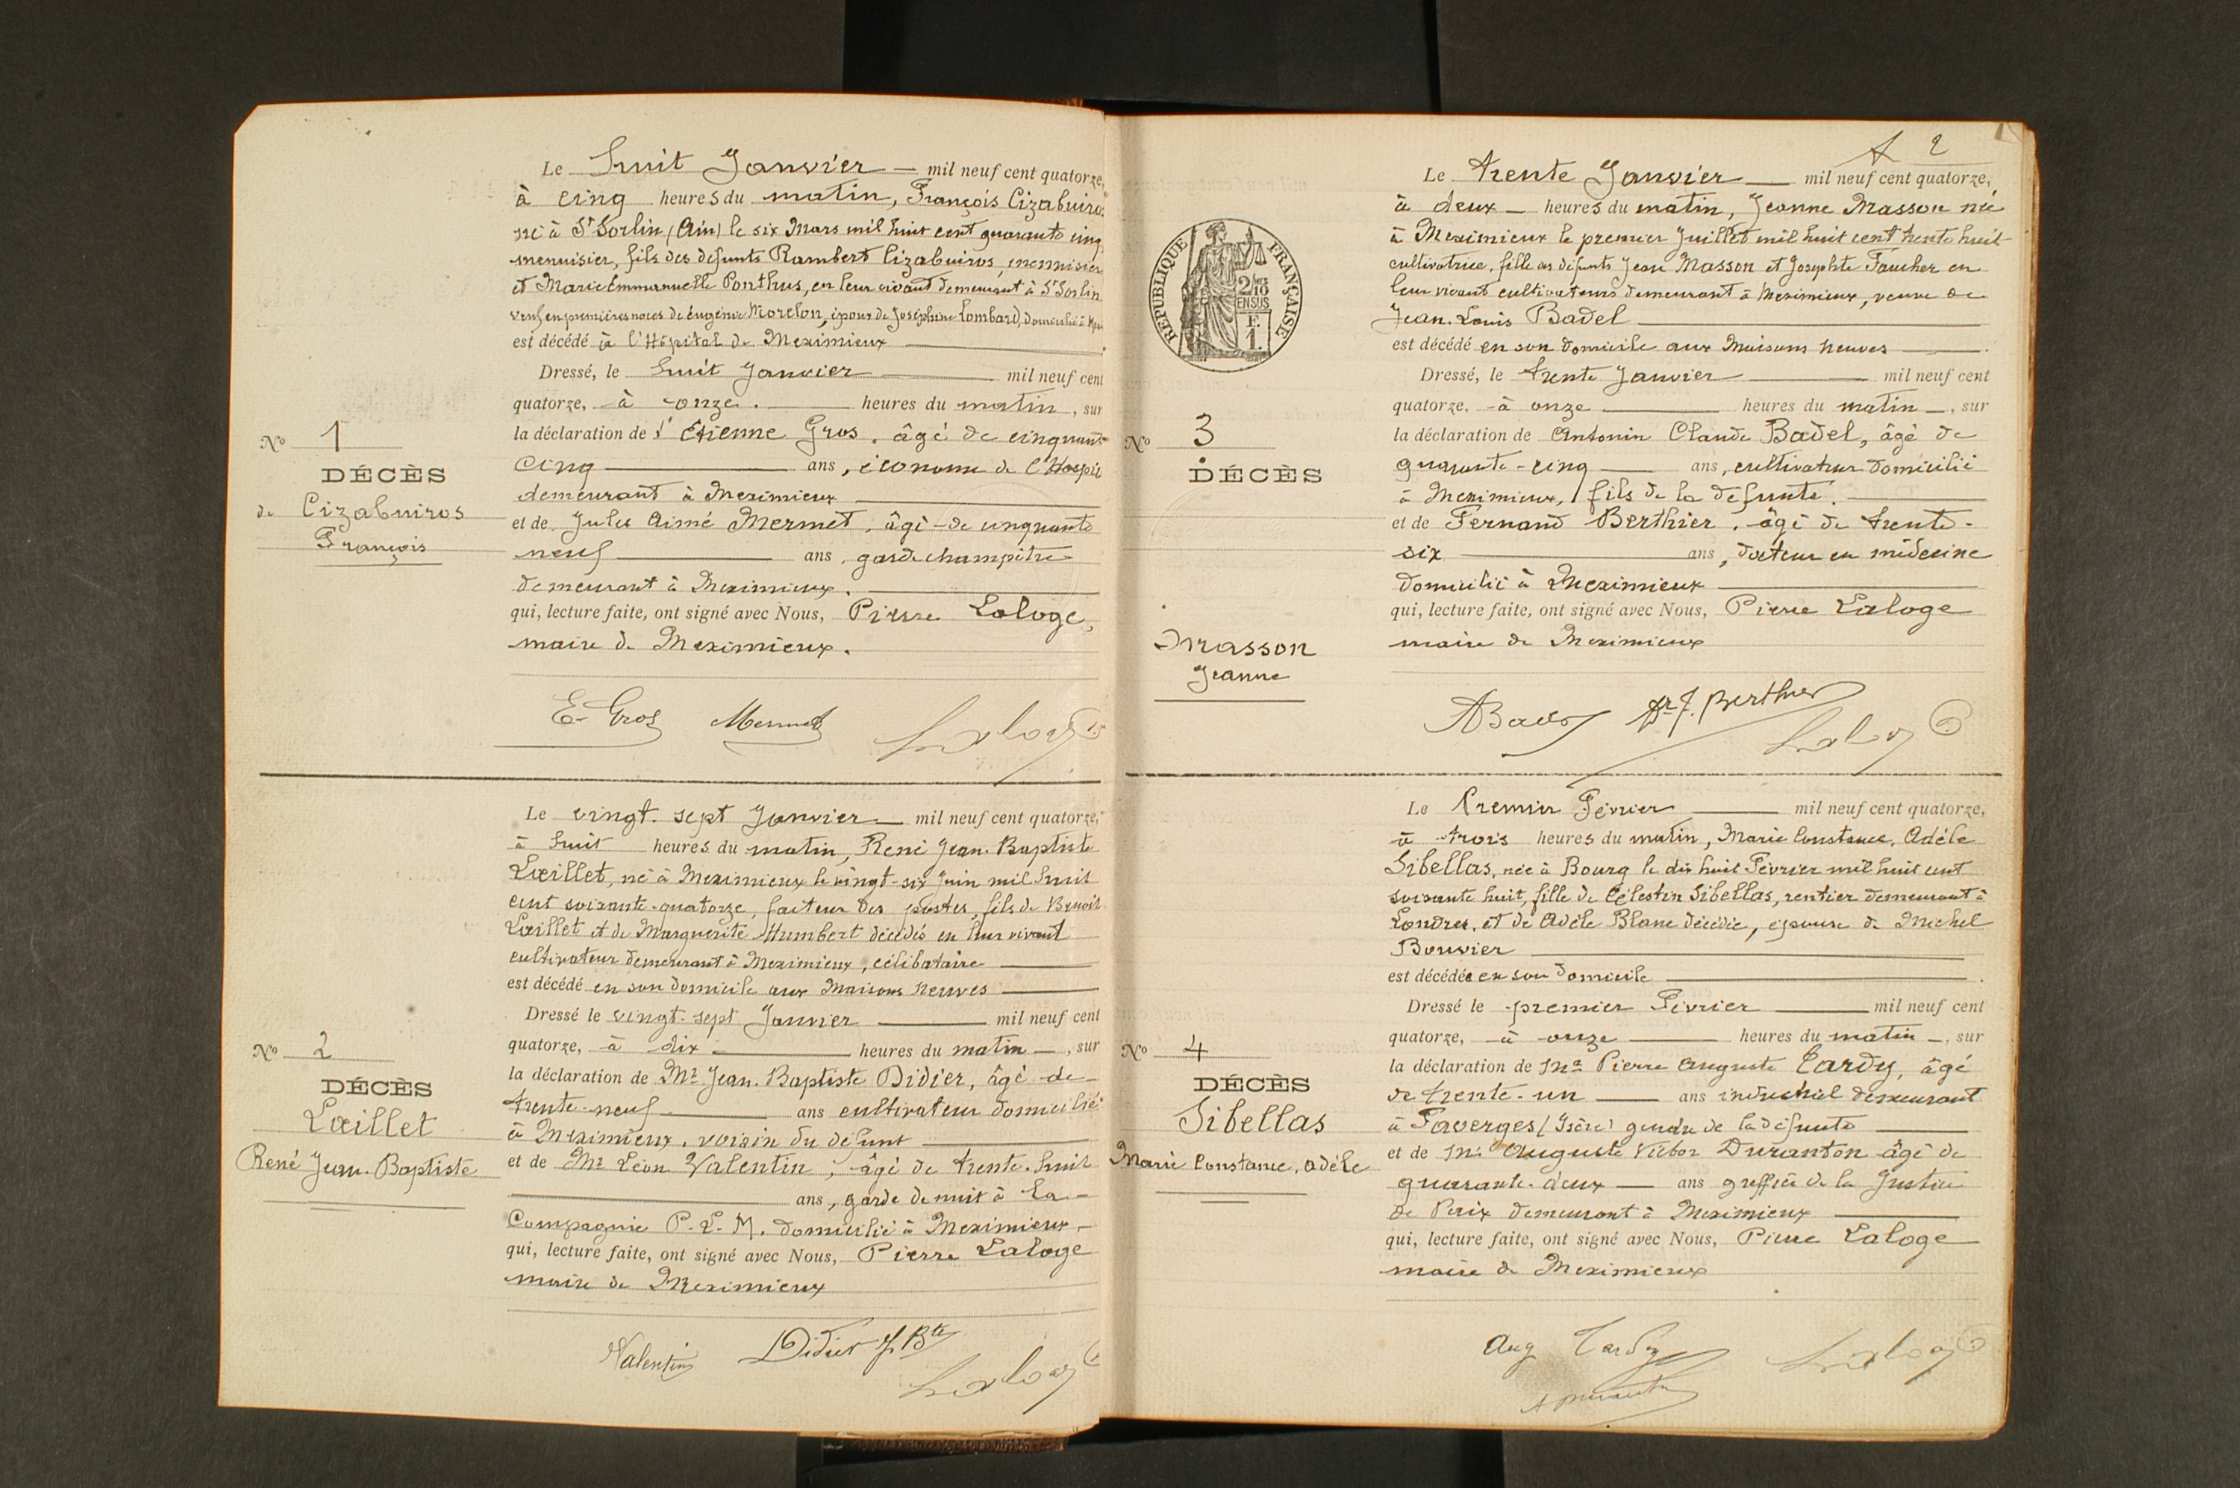 Le huit Janvier — mil neuf cent quatorze,
à cinq heures du matin, François Cizabuiros
né à St Sorlin (Ain) le six Mars mil huit cent quarante cinq
menuisier, fils des défunts Rambert Cizabuiros, menuisier
et Marie Emmanuelle Ponthus, en leur vivant demeurant à St Sorlin
veuf en premières noces de Eugénie Morelon, époux de Joséphine Lombard, domicilié à
est décédé à l'Hôpital de Meximieux
Dressé, le huit Janvier — mil neuf cent
quatorze, à onze — heures du matin, sur
la déclaration de Sr Etienne Gros, âgé de cinquante
cinq — ans, économe de l'Hospice
demeurant à Meximieux
et de Jules Aimé Mermet, âgé de cinquante
neuf — ans, garde champêtre
demeurant à Meximieux.
qui, lecture faite, ont signé avec Nous, Pierre Laloge,
maire de Meximieux.
No 1
DÉCÈS
de Cizabuiros
François
E. Gros Mermet Laloge
Le vingt-sept Janvier — mil neuf cent quatorze,
à huit heures du matin, René Jean-Baptiste
Lœillet, né à Meximieux le vingt-six Juin mil huit
cent soixante-quatorze, facteur des postes, fils de Benoit
Lœillet et de Marguerite Humbert décédés en leur vivant
cultivateur demeurant à Meximieux, célibataire
est décédé en son domicile aux Maisons neuves
Dressé le vingt-sept Janvier — mil neuf cent
quatorze, à dix — heures du matin —, sur
la déclaration de Mr Jean-Baptiste Didier, âgé de
trente-neuf — ans cultivateur domicilié
à Meximieux, voisin du défunt
et de Mr Léon Valentin, âgé de trente-huit
— ans, garde de nuit à La
Compagnie P.L.M. domicilié à Meximieux
qui, lecture faite, ont signé avec Nous, Pierre Laloge
maire de Meximieux
No 2
DÉCÈS
Lœillet
René Jean-Baptiste
Valentin Didier J. Bte Laloge
2
Le trente Janvier — mil neuf cent quatorze,
à deux — heures du matin, Jeanne Masson née
à Meximieux le premier Juillet mil huit cent trente huit
cultivatrice, fille des défunts Jean Masson et Josephte Faucher en
leur vivant cultivateurs demeurant à Meximieux, veuve de
Jean-Louis Badel
est décédé en son domicile aux Maisons neuves
Dressé, le trente Janvier — mil neuf cent
quatorze, à onze — heures du matin —, sur
la déclaration de Antonin Claude Badel, âgé de
quarante-cinq — ans, cultivateur domicilié
à Meximieux, fils de la défunte.
et de Fernand Berthier, âgé de trente-
six — ans, docteur en médecine
domicilié à Meximieux
qui, lecture faite, ont signé avec Nous, Pierre Laloge
maire de Meximieux
RÉPUBLIQUE FRANÇAISE
2/10
EN SUS
F.
1.
No 3
DÉCÈS
Masson
Jeanne
A Badel Dr F. Berthier Laloge
Le Premier Février — mil neuf cent quatorze,
à trois heures du matin, Marie Constance, Adèle
Sibellas, née à Bourg le dix huit Février mil huit cent
soixante huit, fille de Célestin Sibellas, rentier demeurant à
Londres, et de Adèle Blanc décédée, épouse de Michel
Bouvier
est décédée en son domicile
Dressé le premier Février — mil neuf cent
quatorze, à onze — heures du matin —, sur
la déclaration de Mr Pierre Auguste Tardy, âgé
de trente-un — ans industriel demeurant
à Faverges (Isère) gendre de la défunte
et de Mr Auguste Victor Duranton âgé de
quarante-deux — ans greffier de la Justice
de Paix demeurant à Meximieux
qui, lecture faite, ont signé avec Nous, Pierre Laloge
maire de Meximieux
No 4
DÉCÈS
Sibellas
Marie Constance, Adèle
Aug Tardy Laloge
A Duranton